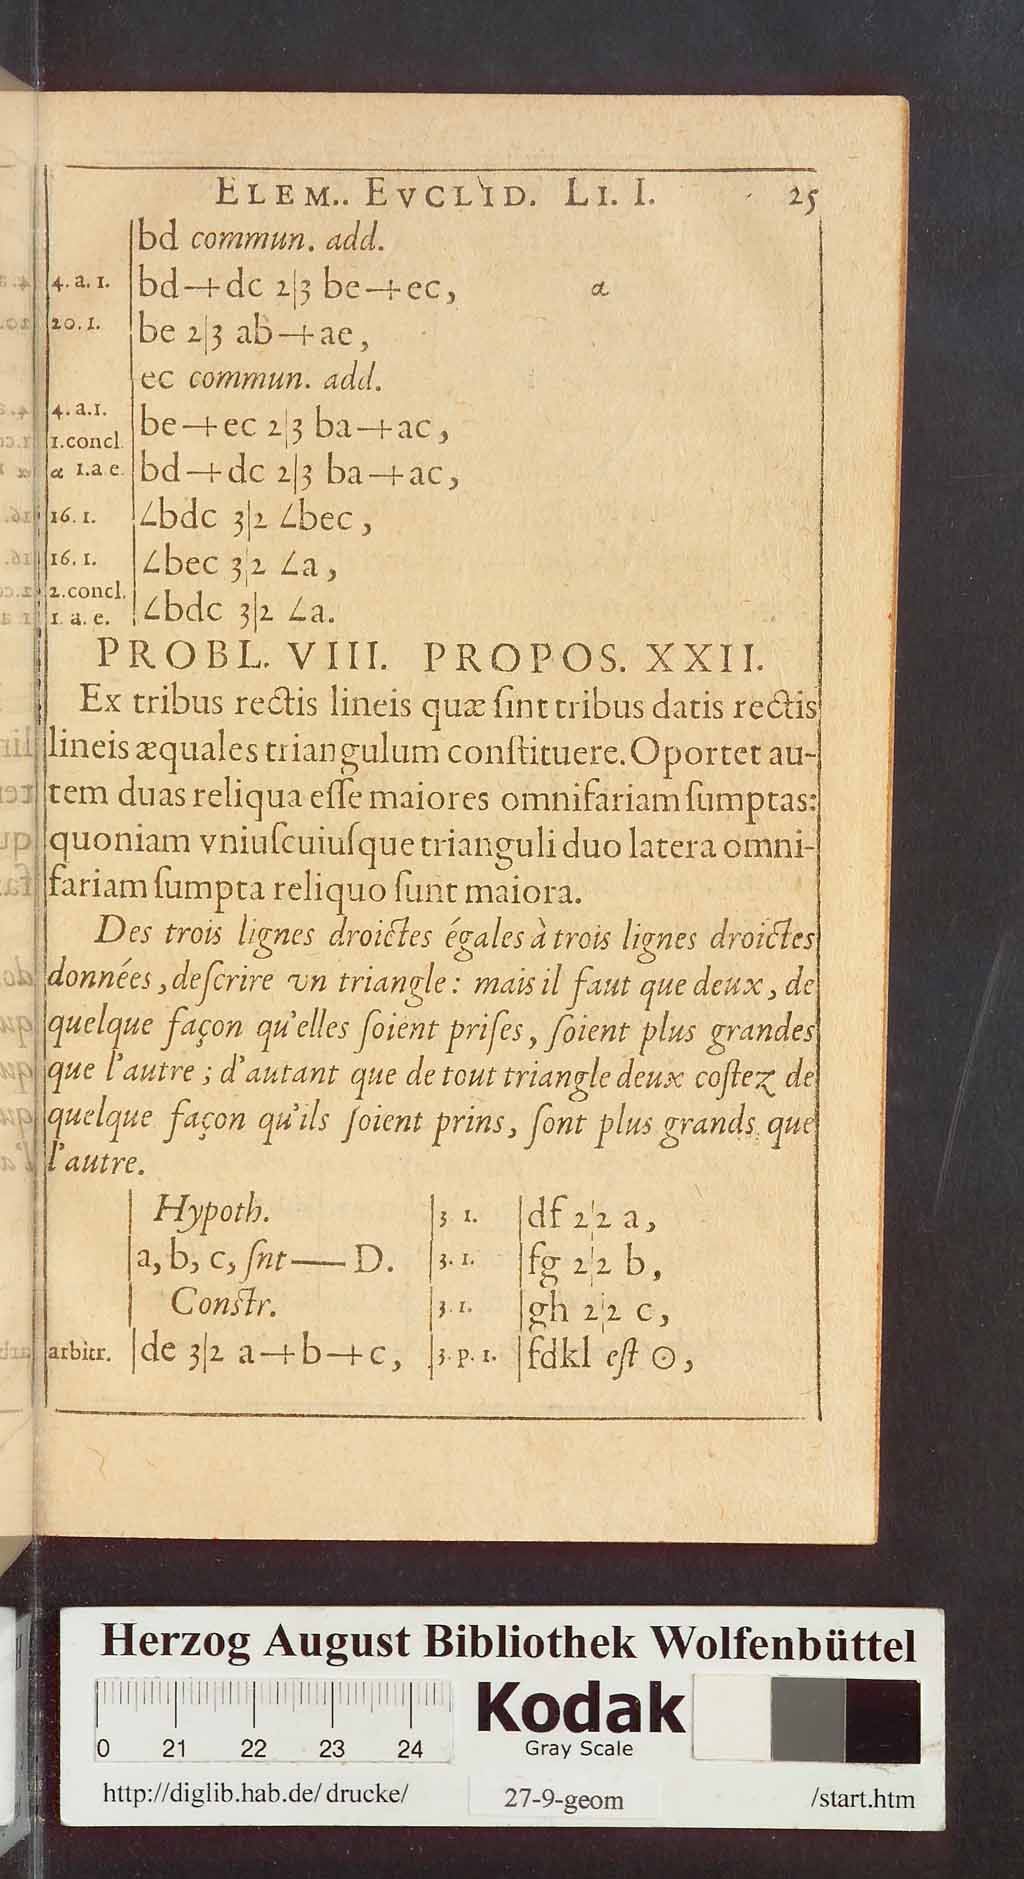 ELEM.. EVCLID. LI. I. 25
bd commun. add.
4. a. 1. bd-+dc 2|3 be-+ec, α
20. 1. be 2|3 ab-+ae,
ec commun. add.
4. a.1. be-+ec 2|3 ba-+ac,
1.concl.
α 1.a e. bd-+dc 2|3 ba-+ac,
16. 1. ∠bdc 3|2 ∠bec,
16. 1. ∠bec 3|2 ∠a,
2.concl.
1. a. e. ∠bdc 3|2 ∠a.
PROBL. VIII. PROPOS. XXII.
Ex tribus rectis lineis quæ ſint tribus datis rectis
lineis æquales triangulum conſtituere. Oportet au-
tem duas reliqua eſſe maiores omnifariam ſumptas:
quoniam vniuſcuiuſque trianguli duo latera omni-
fariam ſumpta reliquo ſunt maiora.
Des trois lignes droictes égales à trois lignes droictes
données, deſcrire vn triangle: mais il faut que deux, de
quelque façon qu'elles ſoient priſes, ſoient plus grandes
que l'autre; d'autant que de tout triangle deux coſtez de
quelque façon qu'ils ſoient prins, ſont plus grands que
l'autre.
Hypoth. 3 1. df 2|2 a,
a, b, c, ſnt — D. 3. 1. fg 2|2 b,
Constr. 3. 1. gh 2|2 c,
arbitr. de 3|2 a-+b-+c, 3. p. 1. fdkl eſt ⊙,
Herzog August Bibliothek Wolfenbüttel
0 21 22 23 24
Kodak
Gray Scale
http://diglib.hab.de/drucke/ 27-9-geom /start.htm